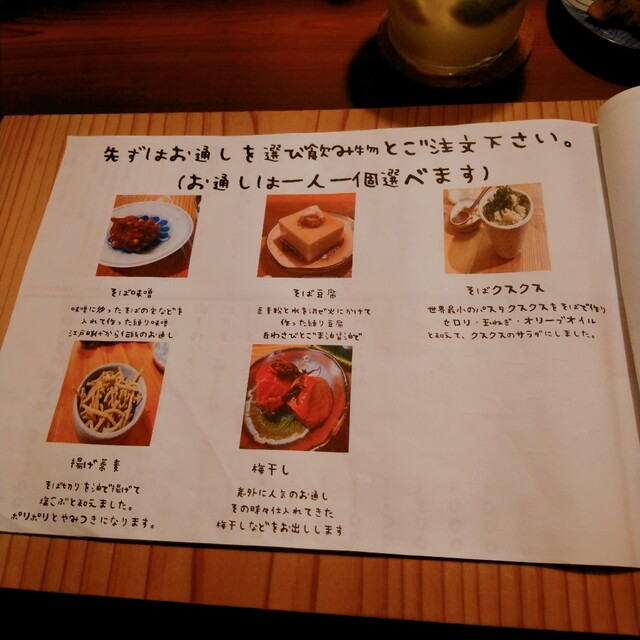 先ずはお通しを選び飲み物とご注文下さい。
(お通しは一人一個選べます)
そば味噌
味噌に炒ったそばの実などを
入れて作った練り味噌
江戸時代から伝統のお通し
そば豆腐
と水を混ぜ火にかけて
作った練り豆腐
白わさびとごま油醤油で
そばクスクス
世界最小のパスタクスクスをそばで作り
セロリ・玉ねぎ・オリーブオイル
と和えて、クスクスのサラダにしました。
揚げ蕎麦
そば切りを油で揚げて
塩こぶと和えました。
ポリポリとやみつきになります。
梅干し
意外に人気のお通し
その時々仕入れてきた
梅干しなどをお出しします